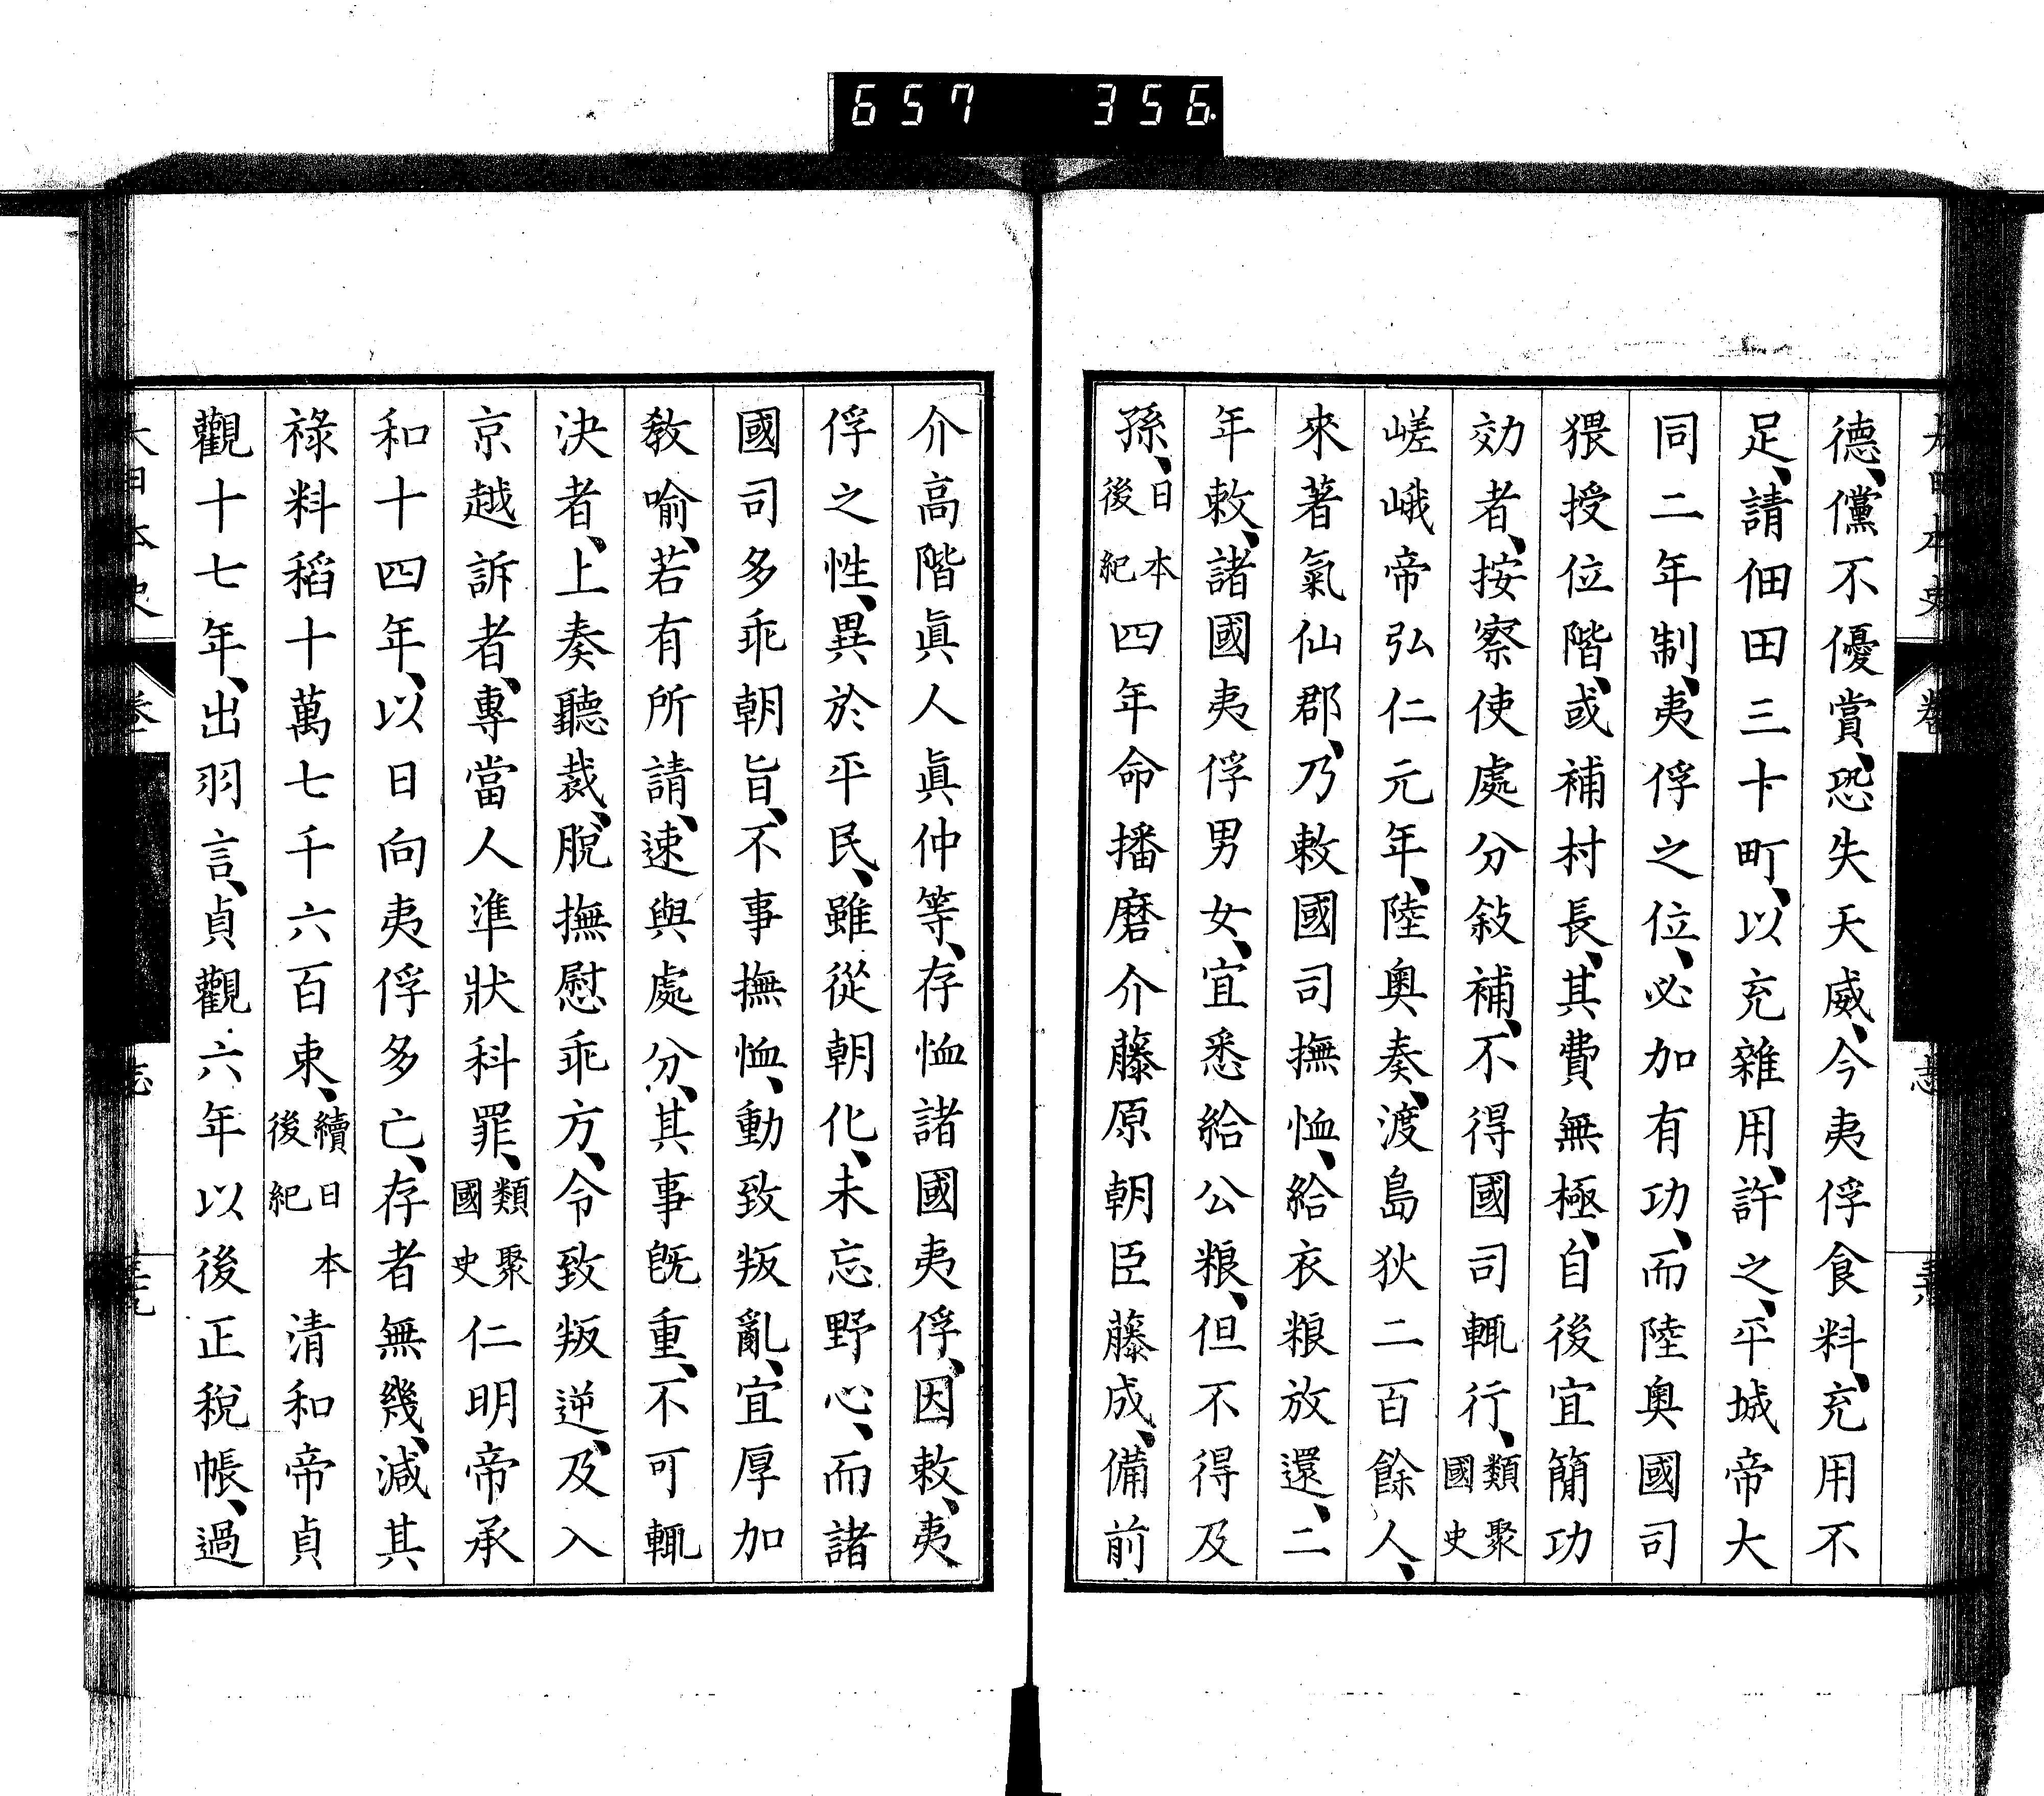 657 356
德、儻不優賞、恐失天威、今夷俘食料、充用不
足、請佃田三十町、以充雜用、許之、平城帝大
同二年制、夷俘之位、必加有功、而陸奧國司
猥授位階、或補村長、其費無極、自後宜簡功
効者、按察使處分敍補、不得國司輙行、類聚國史
嵯峨帝弘仁元年、陸奧奏、渡島狄二百餘人、
來著氣仙郡、乃敕國司撫恤、給衣粮放還、二
年敕、諸國夷俘男女、宜悉給公粮、但不得及
孫、日本後紀四年命播磨介藤原朝臣藤成、備前
介高階眞人眞仲等、存恤諸國夷俘、因敕、夷
俘之性、異於平民、雖從朝化、未忘野心、而諸
國司多乖朝旨、不事撫恤、動致叛亂、宜厚加
敎喻、若有所請、速與處分、其事旣重、不可輙
決者、上奏聽裁、脫撫慰乖方、令致叛逆、及入
京越訴者、專當人準狀科罪、類聚國史仁明帝承
和十四年、以日向夷俘多亡、存者無幾、減其
祿料稻十萬七千六百束、續日本後紀淸和帝貞
觀十七年、出羽言、貞觀六年以後正稅帳、過
大日本史
卷
志